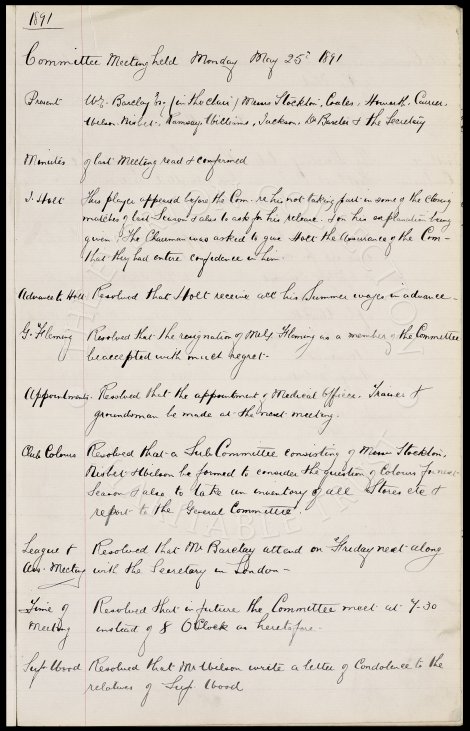 1891
Committee Meeting held Monday May 25th 1891
Present W. E. Barclay Esq (in the chair) Messrs Stockton, Coates, Howarth, Currier,
Wilson, Nisbet, Ramsay, Williams, Jackson, Dr Baxter & the Secretary
Minutes of last Meeting read & confirmed
J. Holt This player appeared before the Com. re his not taking part in some of the closing
matches of last Season & also to ask for his release. & on his explanation being
given, The Chairman was asked to give Holt the Assurance of the Com-
that they had entire confidence in him.
Advance to Holt Resolved that J Holt receive all his Summer wages in advance-
G. Fleming Resolved that the resignation of Mr G Fleming as a member of the Committee
be accepted with much regret-
Appointments Resolved that the appointment of Medical Officer, Trainer &
groundsman be made at the next meeting.
Club Colours Resolved that a Sub Committee consisting of Messrs Stockton,
Nisbet & Wilson be formed to consider the question of Colours for next
Season & also to take an inventory of all Stores etc &
report to the General Committee.
League & Resolved that Mr Barclay attend on Friday next along
Ass. Meeting with the Secretary in London-
Time of Resolved that in future the Committee meet at 7-30
Meeting instead of 8 O'Clock as heretofore-
Supt Wood Resolved that Mr Wilson write a letter of Condolence to the
relatives of Supt Wood